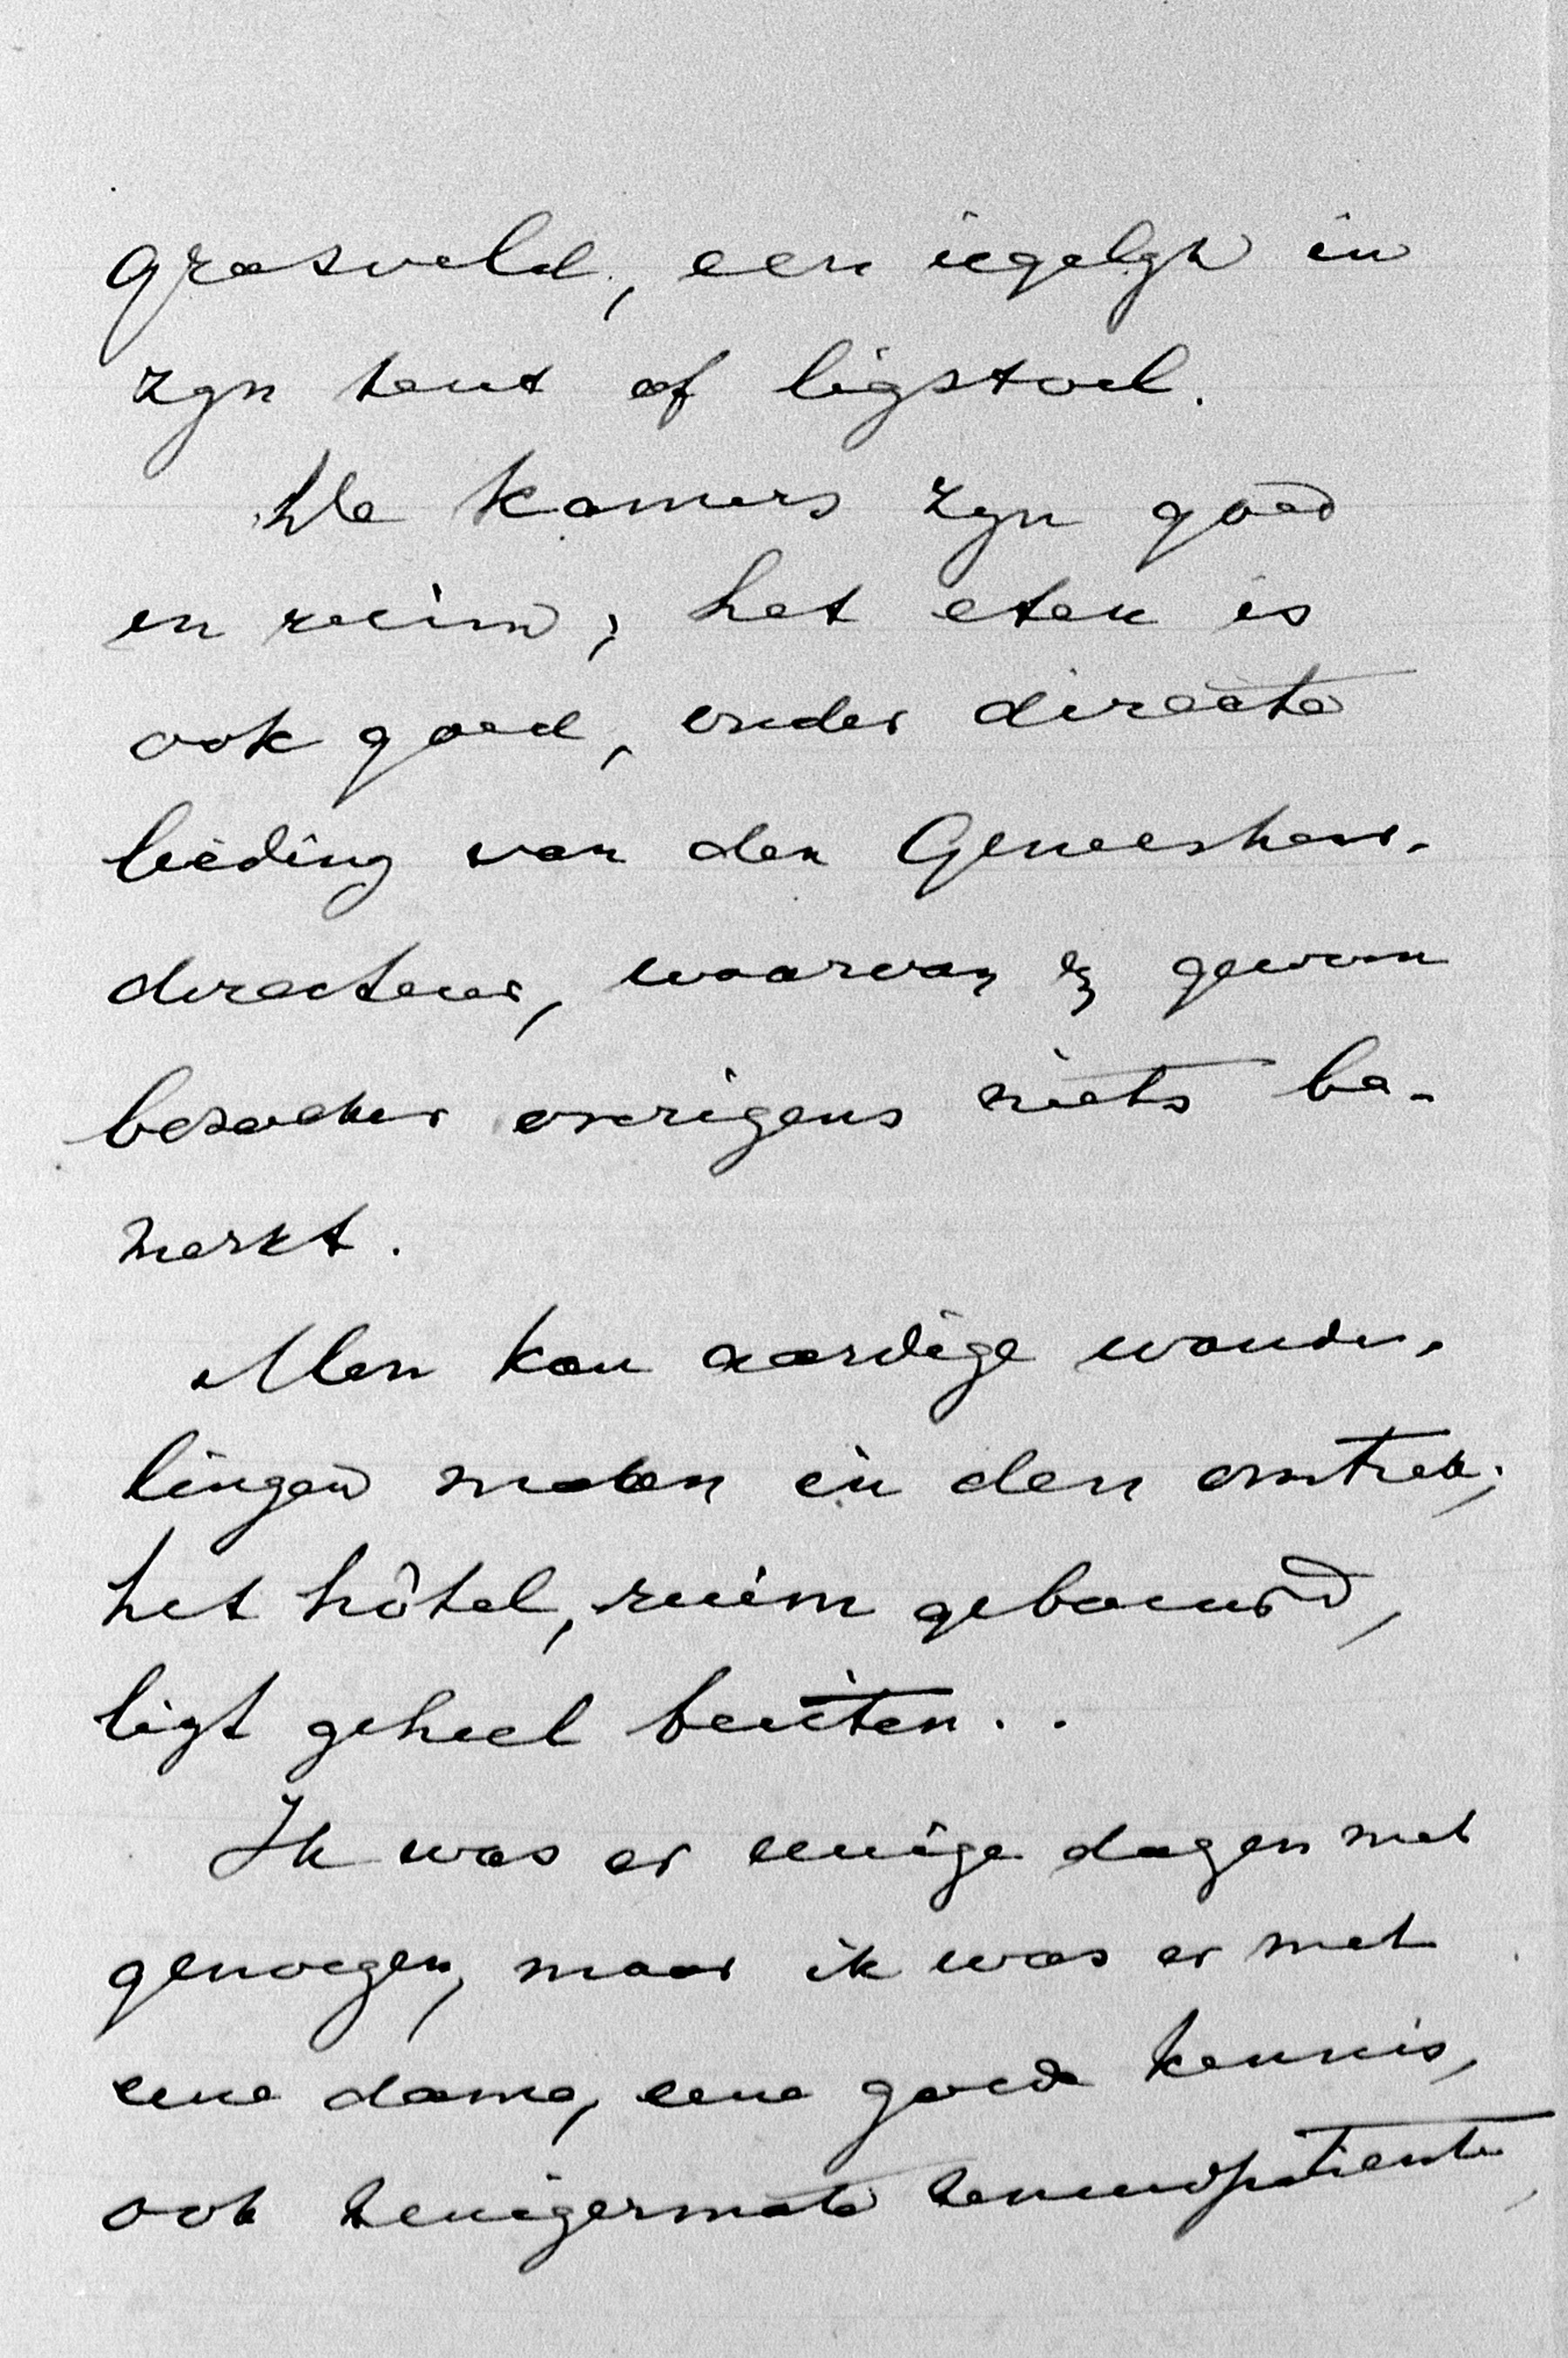 grasveld, een iegelijk in
zijn tent of ligstoel.
De kamers zijn goed
en ruim; het eten is
ook goed, onder directe
leiding van den Geneesheer-
directeur, waarvan gewoon
bezoeker overigens niets be-
merkt.
Men kan aardige wande-
lingen maken in den omtrek;
het hôtel, ruim gebouwd,
ligt geheel buiten..
Ik was er eenige dagen met
genoegen, maar ik was er met
eene dame, eene goede kennis,
ook eenigermate zenuwpatiente,